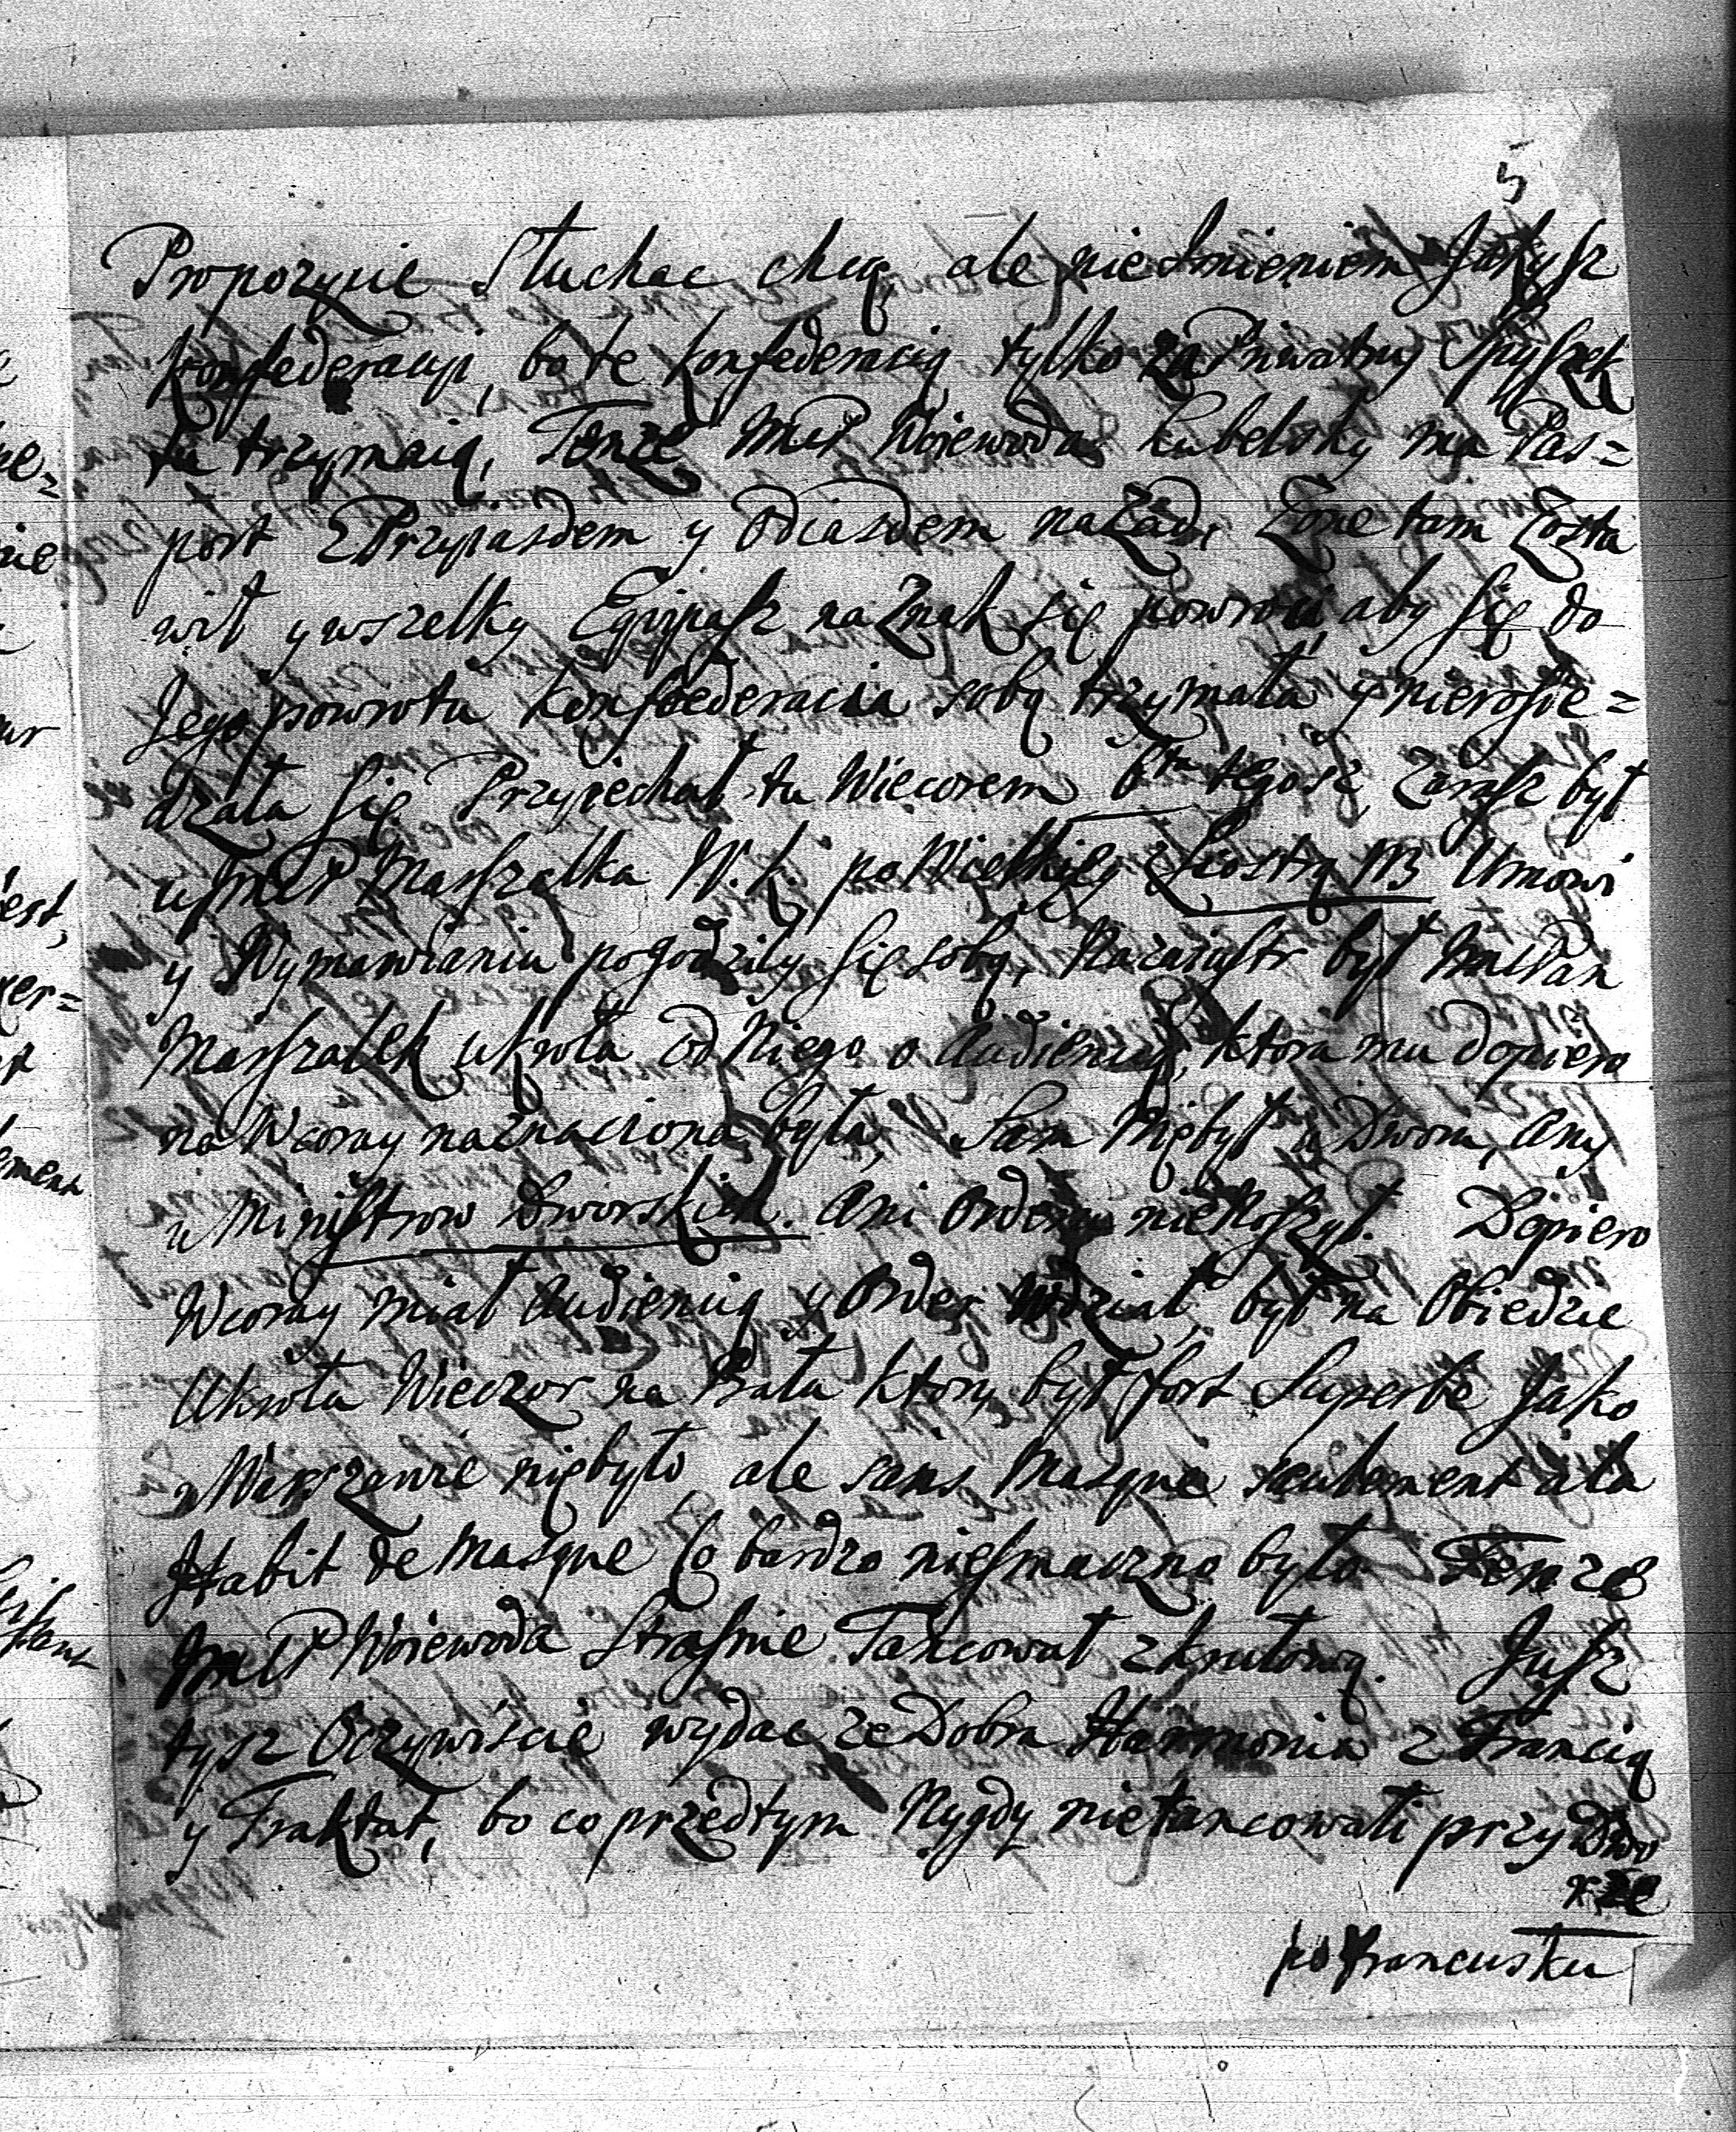 5
Propozycie Słuchac chcą, ale nie Imieniem Jakysz
Konfederacyi, bo te Konfederacią tylko za Priwatny Spyszek
tu trzymaią, Tenze JmcP Woiewoda Lubelsky ma Pas=
port z Przyiasdem y Odiasdem nazad, Zone tam Zosta
wił y wszelky Eqvipasz na Znak się powroci, aby się do
Jego powrotu Konfoederacia sobą trzymała y nierosie=
dzała się. Przyiechał tu Wieczorem 6ta tegosz, zarasz był
u JmcP Marszalka W. K. po Wielkiey z Siostrą
y Wymawianiu pogodzily się sobą, Nazaiustr był JmcPan
Marszałek u Krola od Niego o Audiencią, ktora mu dopiero
na Wczoray naznaciona była, Sam Niebył u Dworu, Any
u Ministrow Dworskich. Ani Orderu nie Noszył. Dopiero
Wczoray miał Audiencią y Order wdział, był na Obiedzie
U krola Wieczor na Balu ktory był fort Superbe Jako
w Warszawie niebyło ale sans Masque seulement a la
Habit de Masque Co bardzo niesmaczno było Tenze
JmcP Woiewoda Strasnie Tancował z krulową. Jusz
tysz Oczywiscie wydac ze Dobra Harmonia z Francią
y Traktat, bo co przedtym Nygdy nie tancowali przy Dwo
rze
po francusku